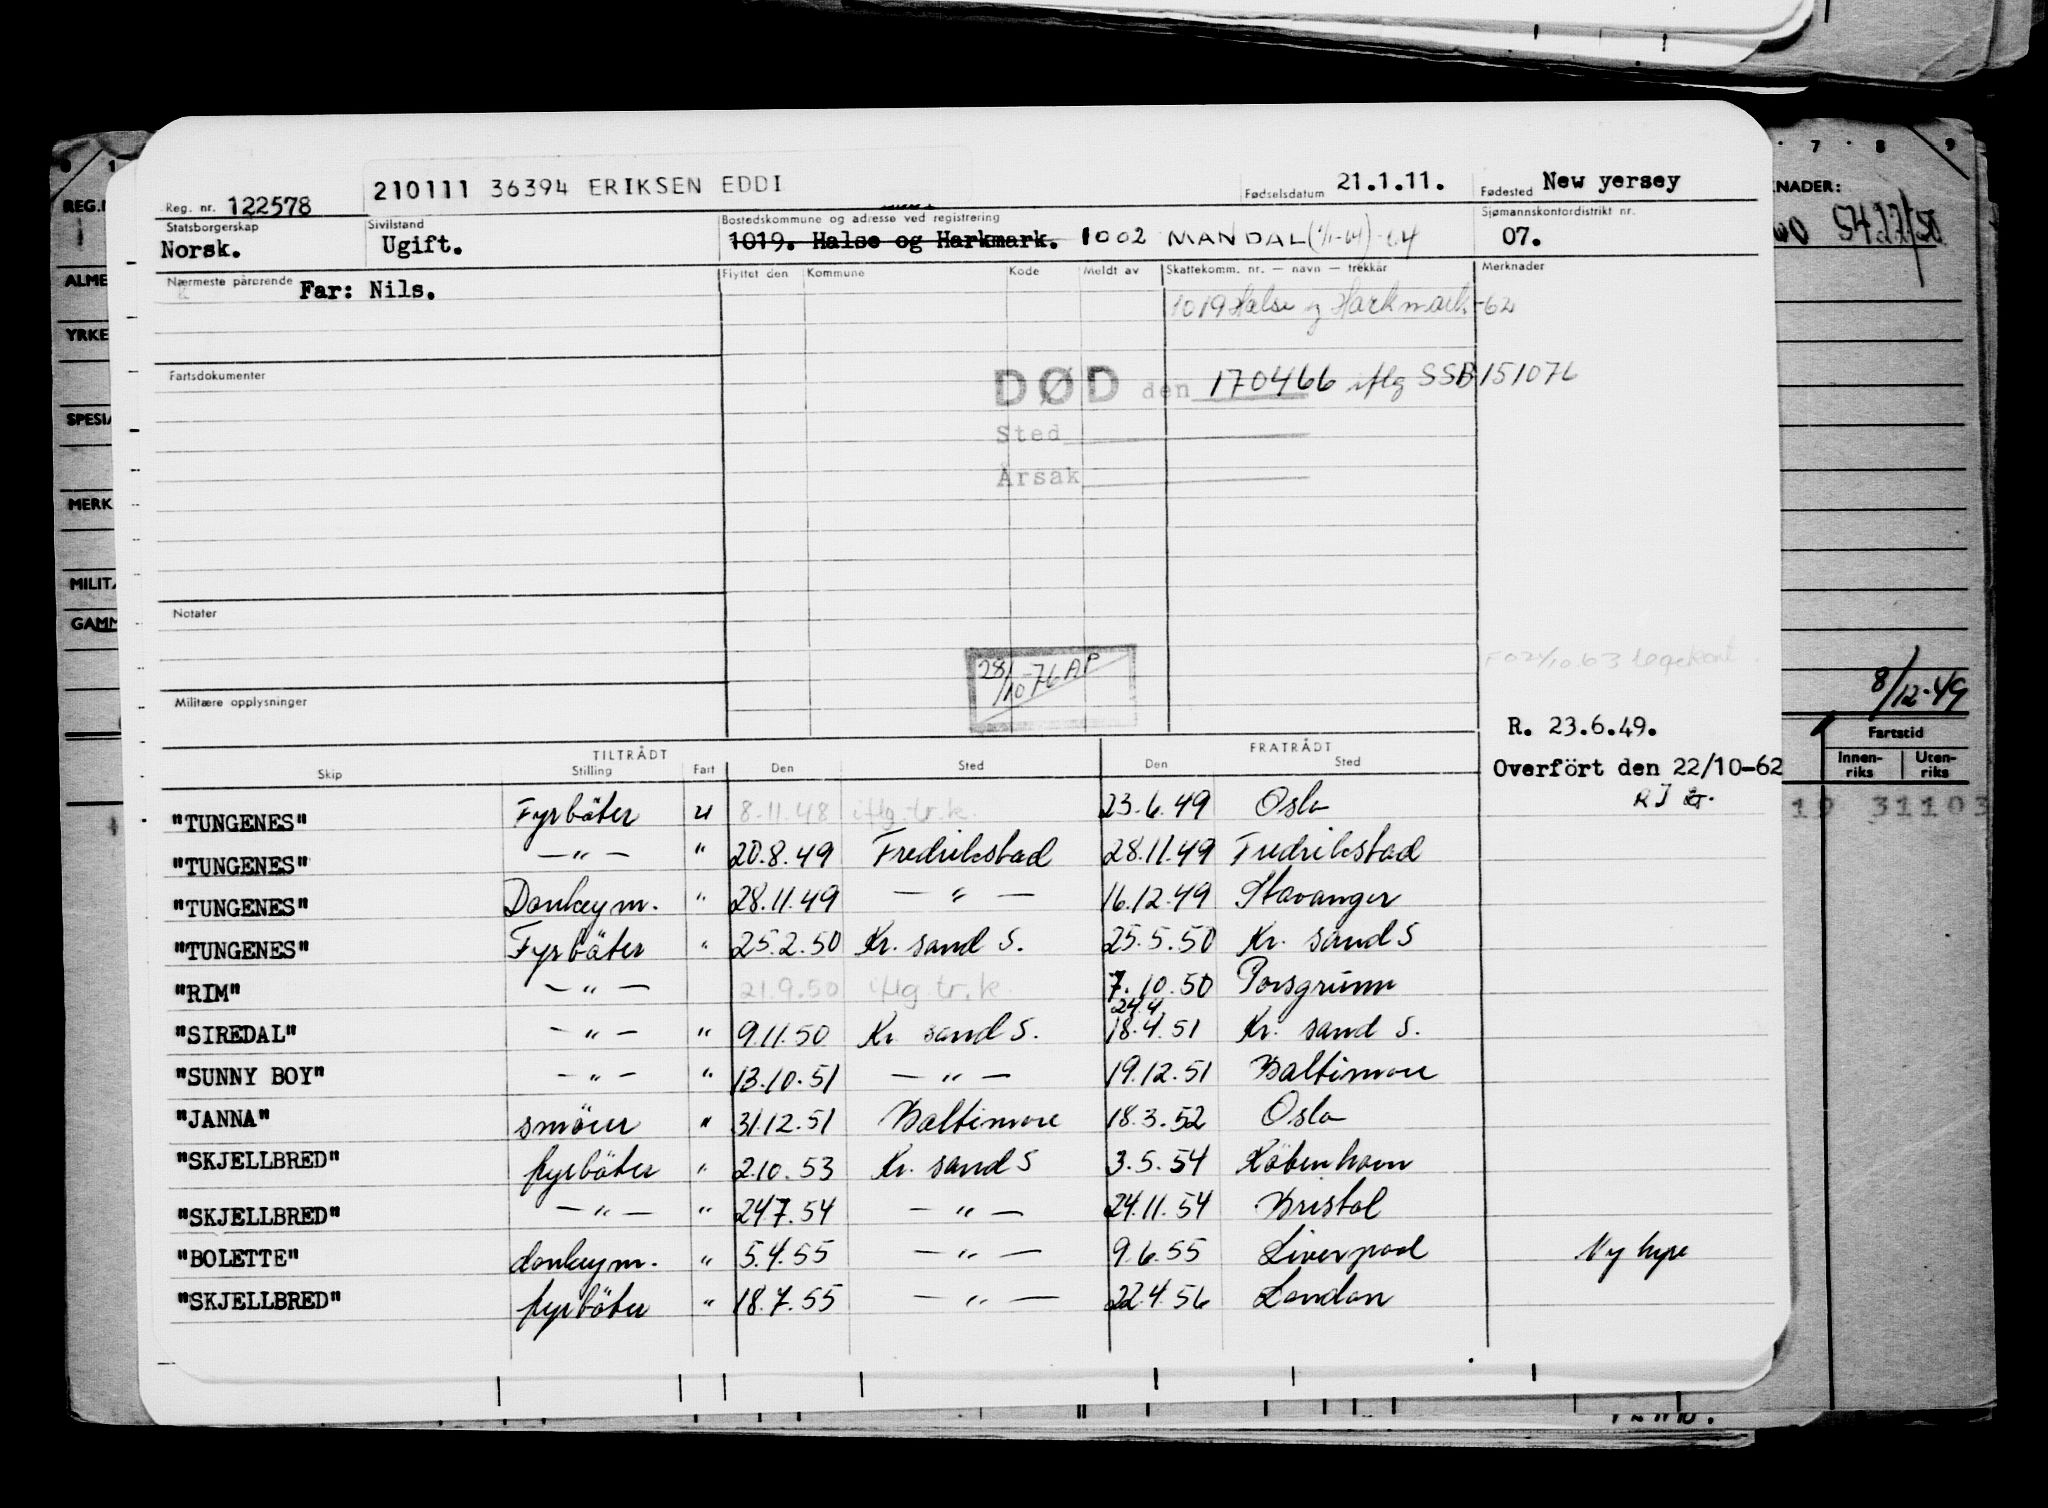 210111 36394 ERIKSEN EDDI
Reg. nr. 122578
Fødselsdatum 21.1.11.
Fødested New yersey
Statsborgerskap Norsk.
Sivilstand Ugift.
Bostedskommune og adresse ved registrering
1019. Halse og Harkmark. 1002 MANDAL (1/1-64) -64
Sjømannskontordistrikt nr. 07.
Nærmeste pårørende Far: Nils.
Flyttet den Kommune Kode Meldt av Skattekomm. nr. — navn — trekkår Merknader
1019 Halse og Harkmark -62
Fartsdokumenter
DØD den 170466 iflg SSB 151076
Sted
Årsak
Notater
28/10-76 AP
Militære opplysninger
R. 23.6.49.
Overfört den 22/10-62
TILTRÅDT FRATRÅDT
Skip Stilling Fart Den Sted Den Sted
"TUNGENES" Fyrböter U 8.11.48 iflg. tr. k. 23.6.49 Oslo
"TUNGENES" — " — " 20.8.49 Fredrikstad 28.11.49 Fredrikstad
"TUNGENES" Donkeym. " 28.11.49 — " — 16.12.49 Stavanger
"TUNGENES" Fyrböter " 25.2.50 Kr. sand S. 25.5.50 Kr. sand S
"RIM" — " — 21.9.50 iflg. tr. k. 7.10.50 Porsgrunn
24.4
"SIREDAL" — " — " 9.11.50 Kr. sand S. 18.4.51 Kr. sand S.
"SUNNY BOY" — " — " 13.10.51 — " — 19.12.51 Baltimore
"JANNA" smörer " 31.12.51 Baltimore 18.3.52 Oslo
"SKJELLBRED" fyrböter " 2.10.53 Kr. sand S 3.5.54 Köbenhavn
"SKJELLBRED" — " — " 24.7.54 — " — 24.11.54 Bristol
"BOLETTE" donkeym. " 5.4.55 — " — 9.6.55 Liverpool Ny hyre
"SKJELLBRED" fyrböter " 18.7.55 — " — 22.4.56 London
7 8 9
KNADER:
8/12-49
Fartstid
Innen-riks Uten-riks
19 31103
0 1
REG.N
ALME
YRKE
SPESIA
MERK
MILITÆ
GAMM